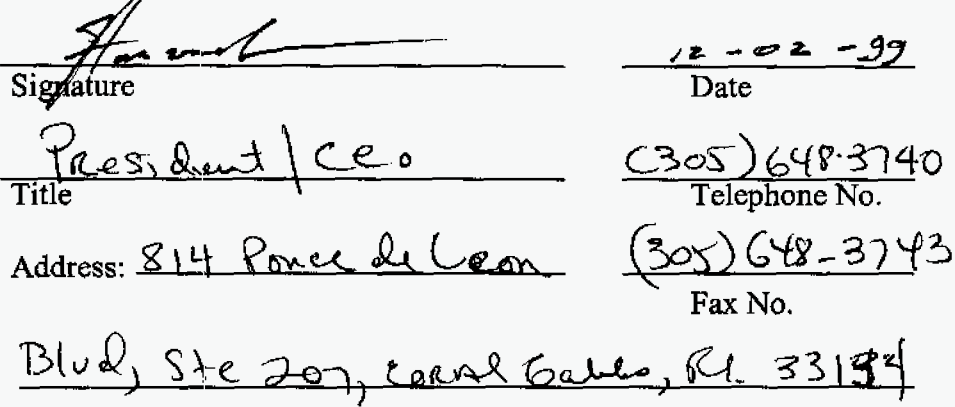 12-02-99
Signature Date
President / CEO (305) 648-3740
Title Telephone No.
Address: 814 Ponce de Leon (305) 648-3743
Fax No.
Blvd, Ste 207, Coral Gables, Fl. 33134